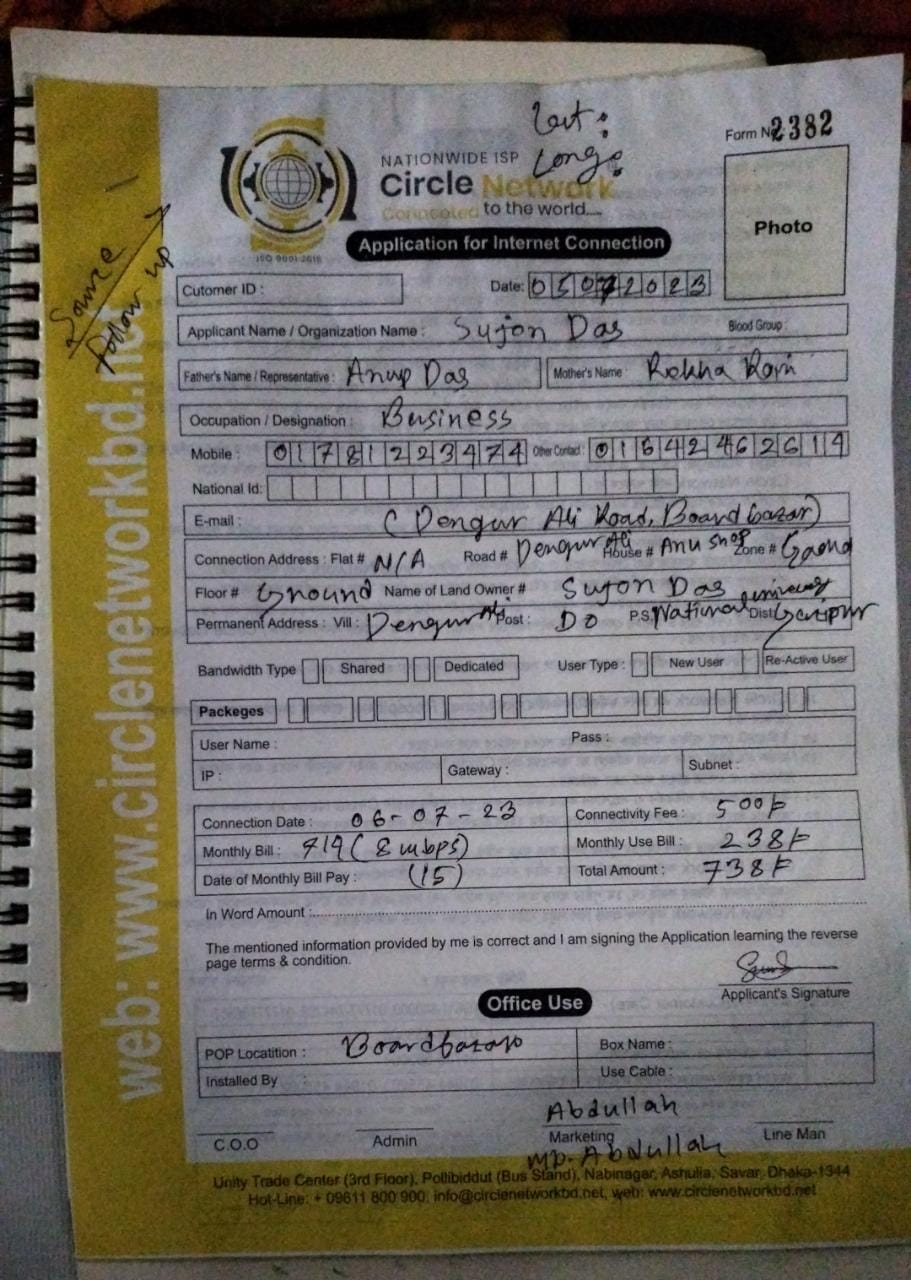 Lat:
Long:
Form No 2382
NATIONWIDE ISP
Circle Network
Connected to the world....
ISO 9001:2015
Photo
Application for Internet Connection
Source
Follow up
Cutomer ID :
Date: 05072023
Applicant Name / Organization Name : Sujon Das Blood Group :
Father's Name / Representative : Anup Das Mother's Name : Rekha Rani
Occupation / Designation : Business
Mobile : 01781223474 Other Contact : 01642462614
National Id:
E-mail : (Dengur Ali Road, Board bazar)
Connection Address : Flat # N/A Road # Dengur Ali House # Anu Shop Zone #
Floor # Ground Name of Land Owner # Sujon Das
Permanent Address : Vill : Dengur Ali Post : DO P.S. National Dist: Gazipur
Bandwidth Type Shared Dedicated User Type : New User Re-Active User
Packeges
User Name : Pass :
IP : Gateway : Subnet :
Connection Date : 06-07-23 Connectivity Fee : 500/-
Monthly Bill : (8 mbps) Monthly Use Bill : 238/-
Date of Monthly Bill Pay : (15) Total Amount : 738/-
In Word Amount :
The mentioned information provided by me is correct and I am signing the Application learning the reverse
page terms & condition.
Applicant's Signature
Office Use
POP Locatition : Boardbazar Box Name :
Installed By Use Cable :
Abdullah
C.O.O Admin Marketing Line Man
MD. Abdullah
Unity Trade Center (3rd Floor), Pollibiddut (Bus Stand), Nabinagar, Ashulia, Savar, Dhaka-1344
Hot-Line: + 09611 800 900, info@circlenetworkbd.net, web: www.circlenetworkbd.net
web: www.circlenetworkbd.net